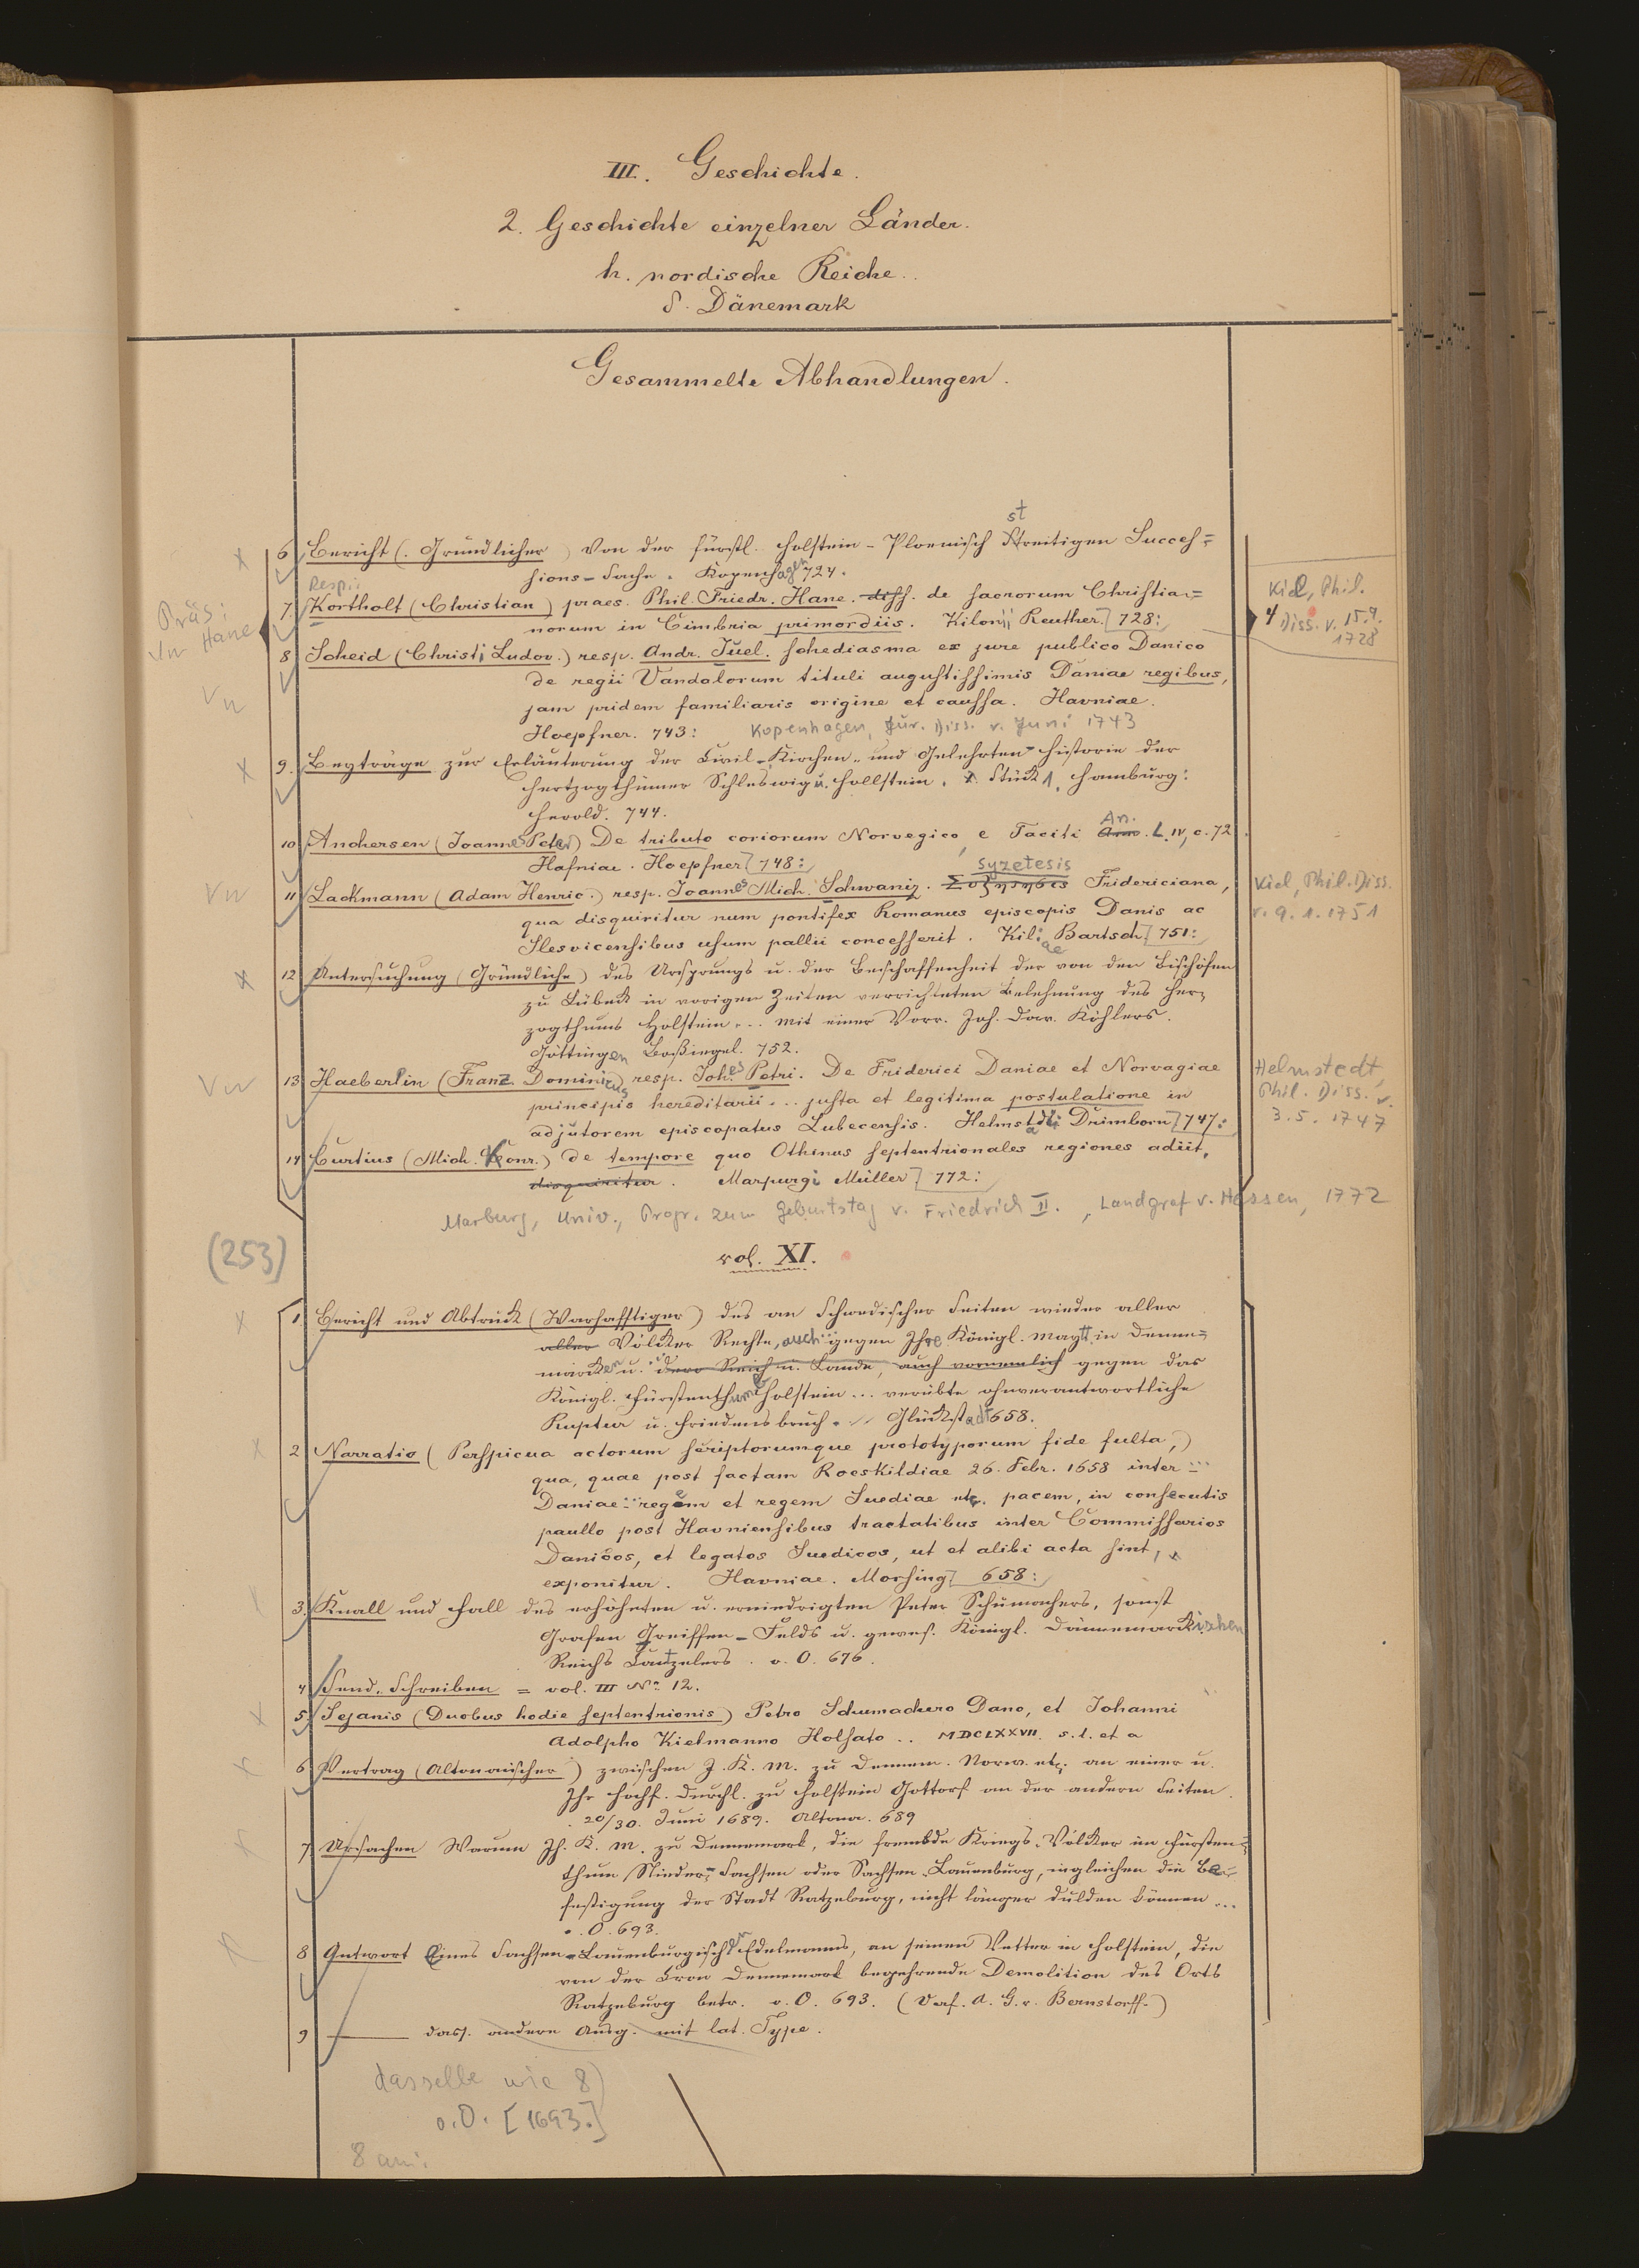 III. Geschichte.
2. Geschichte einzelner Länder.
h. nordische Reiche.
δ. Dänemark
Gesammelte Abhandlungen.
st
6 Bericht (Gründlicher) Von der fürstl. Holstein-Ploenisch Streitigen Succes=
sions-Sache. Kopenhagen 724.
Resp.:
7. Kortholt (Christian) praes. Phil. Friedr. Hane. diss. de sacrorum Christia=
norum in Cimbria primordiis. Kilonii Reuther. 728:
Präs:
Hane
Vw
Kiel, Phil.
Diss. v. 15.9.
1728
8 Scheid (Christi. Ludov.) resp. Andr. Juel. schediasma ex jure publico Danico
de regii Vandalorum tituli augustissimis Daniae regibus,
jam pridem familiaris origine et caussa. Havniae.
Hoepfner. 743: Kopenhagen, Jur. Diss. v. Juni 1743
Vw
9. Beyträge zur Erläuterung der Civil-Kirchen- und Gelehrten-Historie der
Hertzogthümer Schleswig u. Hollstein. Stück 1. Hamburg:
Herold. 744.
10 Anchersen (Joannes Peter) De tributo coriorum Norvegico, e Taciti An. L. IV, c. 72.
Hafniae. Hoepfner 748:
syzetesis
Vw
11 Lackmann (Adam Henric.) resp. Joannes Mich. Schwaniz. Συζητησις Fridericiana,
qua disquiritur num pontifex Romanus episcopis Danis ac
Slesvicensibus usum pallii concesserit. Kiliae Bartsch 751:
Kiel, Phil. Diss.
v. 9.1.1751
12 Untersuchung (Gründliche) des Ursprungs u. der Beschaffenheit der von den Bischöfen
zu Lübeck in vorigen Zeiten verrichteten Belehnung des Her=
zogthums Holstein... mit einer Vorr. Joh. Dav. Köhlers.
Göttingen Boßiegel. 752.
Vw
13 Haeberlin (Franz Dominicus) resp. Johes Petri. De Friderici Daniae et Norvagiae
principis hereditarii... justa et legitima postulatione in
adjutorem episcopatus Lubecensis. Helmstadi Drimborn 747:
Helmstedt,
Phil. Diss. v.
3.5.1747
14 Curtius (Mich. Konr.) de tempore quo Othinus septentrionales regiones adiit,
disquiritur. Marpurgi Müller 772:
Marburg, Univ., Progr. zum Geburtstag v. Friedrich II., Landgraf v. Hessen, 1772
(253)
vol. XI.
1. Bericht und Abtruck (Warhafftiger) des an Schwedischer Seiten wieder aller
aller Völcker Rechte, auch gegen Ihre Königl. Maytt in Denne=
marcken u. dero Reich u. Lande, auch vornemlich gegen das
Königl. Fürstenthumb Holstein... verübte ohnverantwortliche
Ruptur u. Friedensbruch... Glückstadt 658.
2 Narratio (Perspicua actorum scriptorumque prototyporum fide fulta,)
qua, quae post factam Roeskildiae 26. Febr. 1658 inter
Daniae regem et regem Suediae etc. pacem, in consecutis
paullo post Havniensibus tractatibus inter Commissarios
Danicos, et legatos Suedicos, ut et alibi acta sint,
exponitur. Havniae. Morsing 658:
3. Knall und Fall des erhöhten u. erniedrigten Peter Schumachers, sonst
Grafen Greiffen-Felds u. gewes. Königl. Dännemarckischen
Reichs Cantzelers. o. O. 676.
4 Send-Schreiben = vol. III No. 12.
5. Sejanis (Duobus hodie septentrionis) Petro Schumachero Dano, et Johanni
Adolpho Kielmanno Holsato.. MDCLXXVII. s. l. et a
6 Vertrag (Altonaischer) zwischen J. K. M. zu Dennem. Norw. etc. an einer u.
Ihr Hochf. Durchl. zu Holstein Gottorf an der andern Seiten.
20/30. Juni 1689. Altona. 689
7. Ursachen Warum Ih. K. M. zu Dennemark, die frembde Kriegs-Völker im Fürsten=
thum Nieder-Sachsen oder Sachsen-Lauenburg, ingleichen die Be=
festigung der Stadt Ratzeburg, nicht länger dulden können...
o. O. 693.
8 Antwort Eines Sachsen-Lauenburgischen Edelmanns, an seinen Vetter in Holstein, die
von der Cron Dennemark begehrende Demolition des Orts
Ratzeburg betr. o. O. 693. (Verf. A. G. v. Bernstorff.)
9 ——— dass. andere Ausg. mit lat. Type.
dasselbe wie 8)
o. O. [1693.]